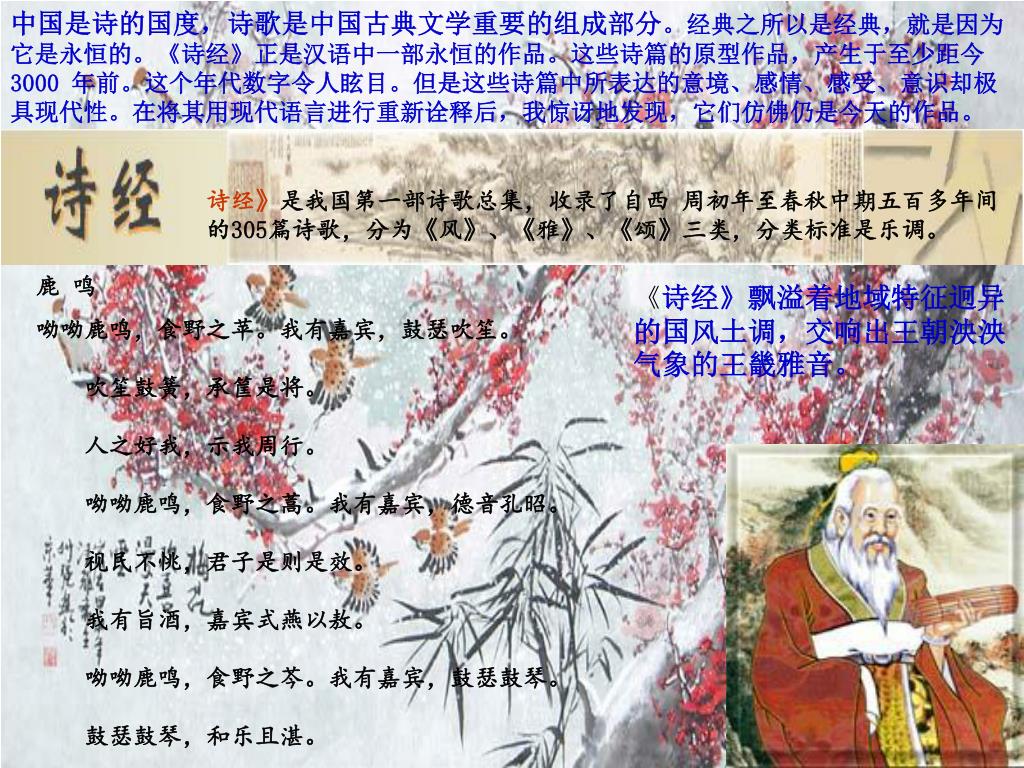 中国是诗的国度，诗歌是中国古典文学重要的组成部分。经典之所以是经典，就是因为
它是永恒的。《诗经》正是汉语中一部永恒的作品。这些诗篇的原型作品，产生于至少距今
3000 年前。这个年代数字令人眩目。但是这些诗篇中所表达的意境、感情、感受、意识却极
具现代性。在将其用现代语言进行重新诠释后，我惊讶地发现，它们仿佛仍是今天的作品。
诗经
诗经》是我国第一部诗歌总集，收录了自西 周初年至春秋中期五百多年间
的305篇诗歌，分为《风》、《雅》、《颂》三类，分类标准是乐调。
鹿 鸣
呦呦鹿鸣，食野之苹。我有嘉宾，鼓瑟吹笙。
吹笙鼓簧，承筐是将。
人之好我，示我周行。
呦呦鹿鸣，食野之蒿。我有嘉宾，德音孔昭。
视民不恌，君子是则是效。
我有旨酒，嘉宾式燕以敖。
呦呦鹿鸣，食野之芩。我有嘉宾，鼓瑟鼓琴。
鼓瑟鼓琴，和乐且湛。
《诗经》飘溢着地域特征迥异
的国风土调，交响出王朝泱泱
气象的王畿雅音。